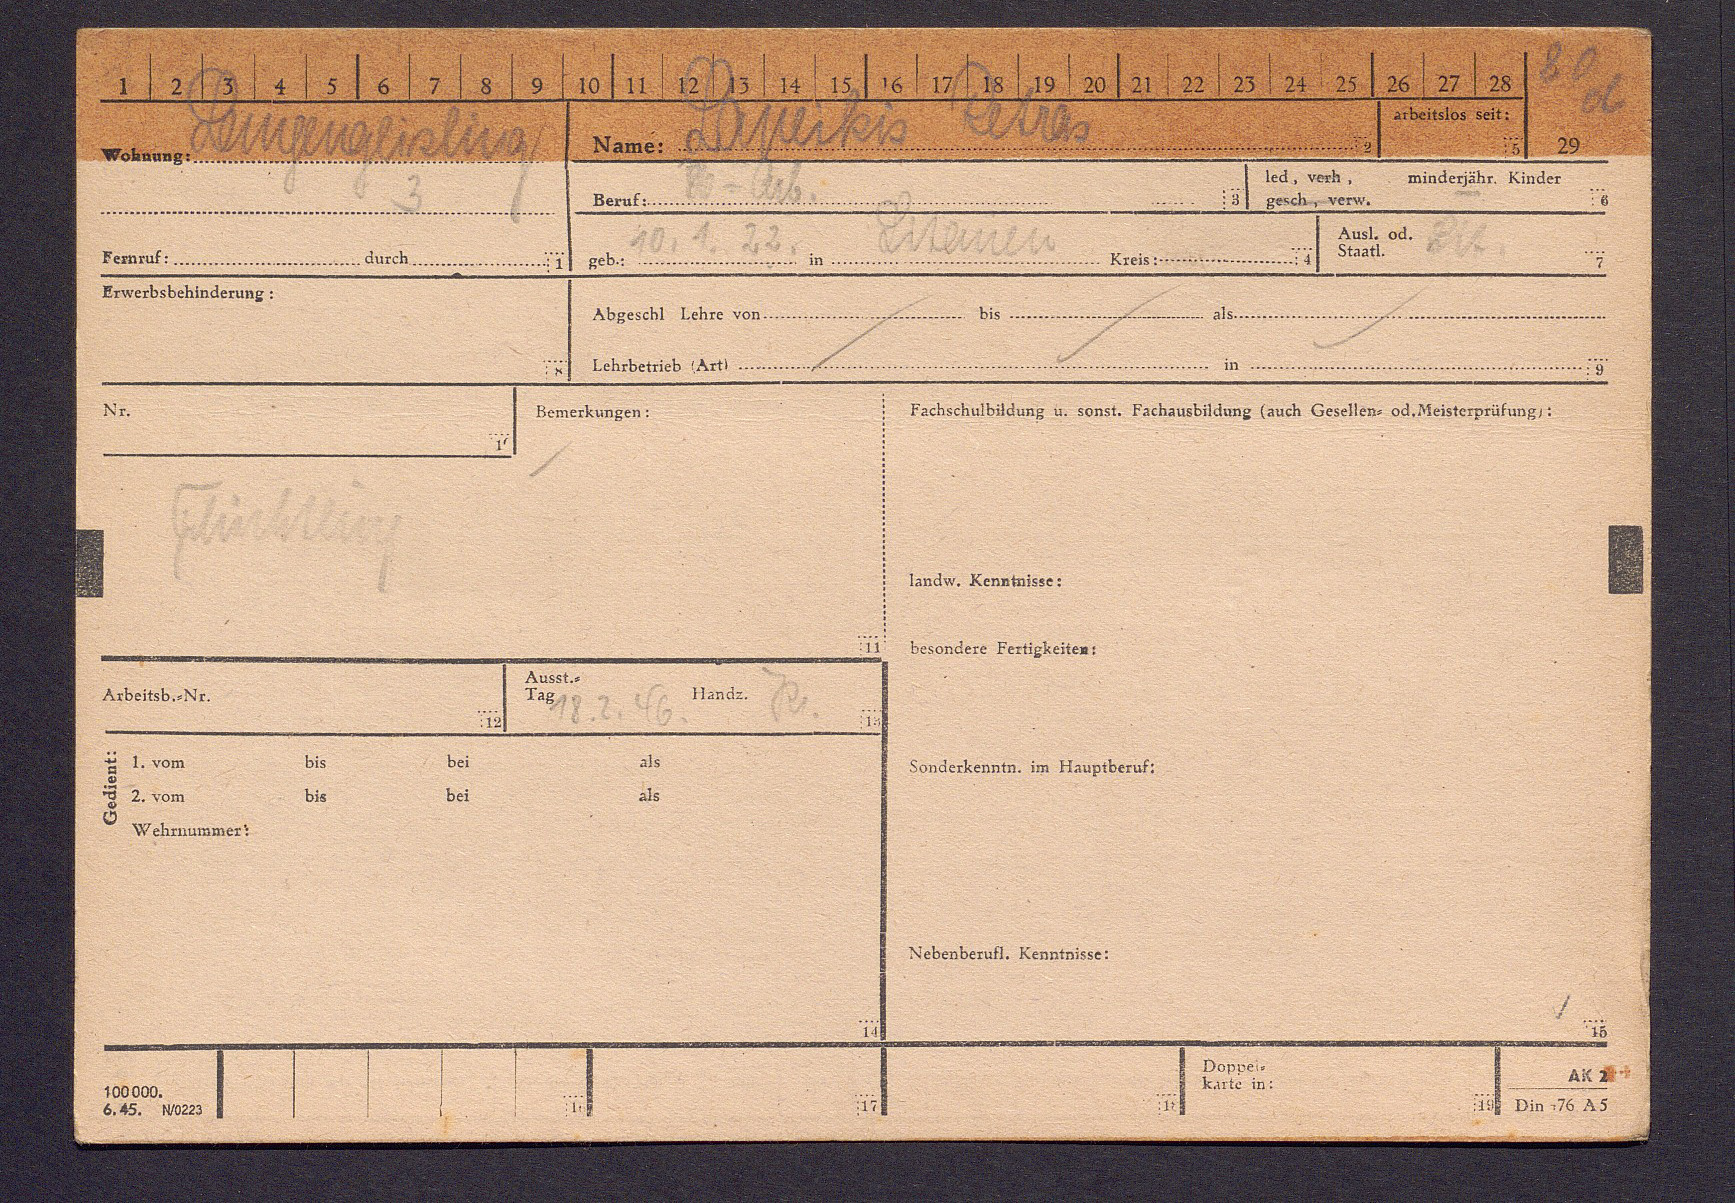 1 2 3 4 5 6 7 8 9 10 11 12 13 14 15 16 17 18 19 20 21 22 23 24 25 26 27 28 80
Wohnung: Lengengeisling Name: Petras 2 arbeitslos seit: 5 29
3 Beruf: Arb. 3 led, verh, minderjähr. Kinder –
gesch, verw. 6
Fernruf: durch 1 geb.: 10. 1. 22. in Litauen Kreis: 4 Ausl. od. Staatl. Lit. 7
Erwerbsbehinderung: 8 Abgeschl Lehre von bis als
Lehrbetrieb (Art) in 9
Nr. Bemerkungen: Fachschulbildung u. sonst. Fachausbildung (auch Gesellen= od. Meisterprüfung):
Flüchtling
landw. Kenntnisse:
11
besondere Fertigkeiten:
Arbeitsb.=Nr. 12 Ausst.=
Tag 18. 2. 46. Handz. 13
Gedient: 1. vom bis bei als
2. vom bis bei als
Wehrnummer:
Sonderkenntn. im Hauptberuf:
Nebenberufl. Kenntnisse:
14 15
100000.
6.45. N/0223 17 Doppel=
karte in: 19 AK 2
Din 476 A5